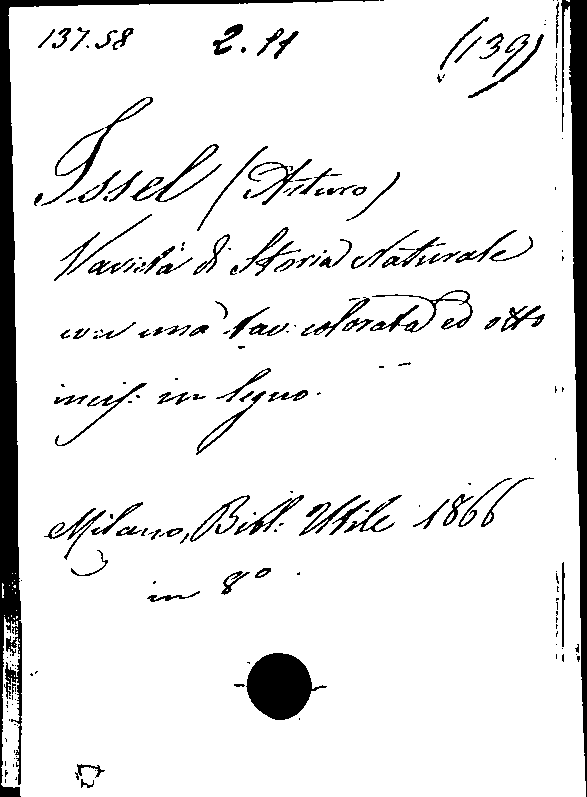 137.58 2.11 (139)
Issel (Arturo)
Varietà di Storia Naturale
con una tav: colorata ed otto
incis: in legno.
Milano, Bibl: Utile 1866
in 8º